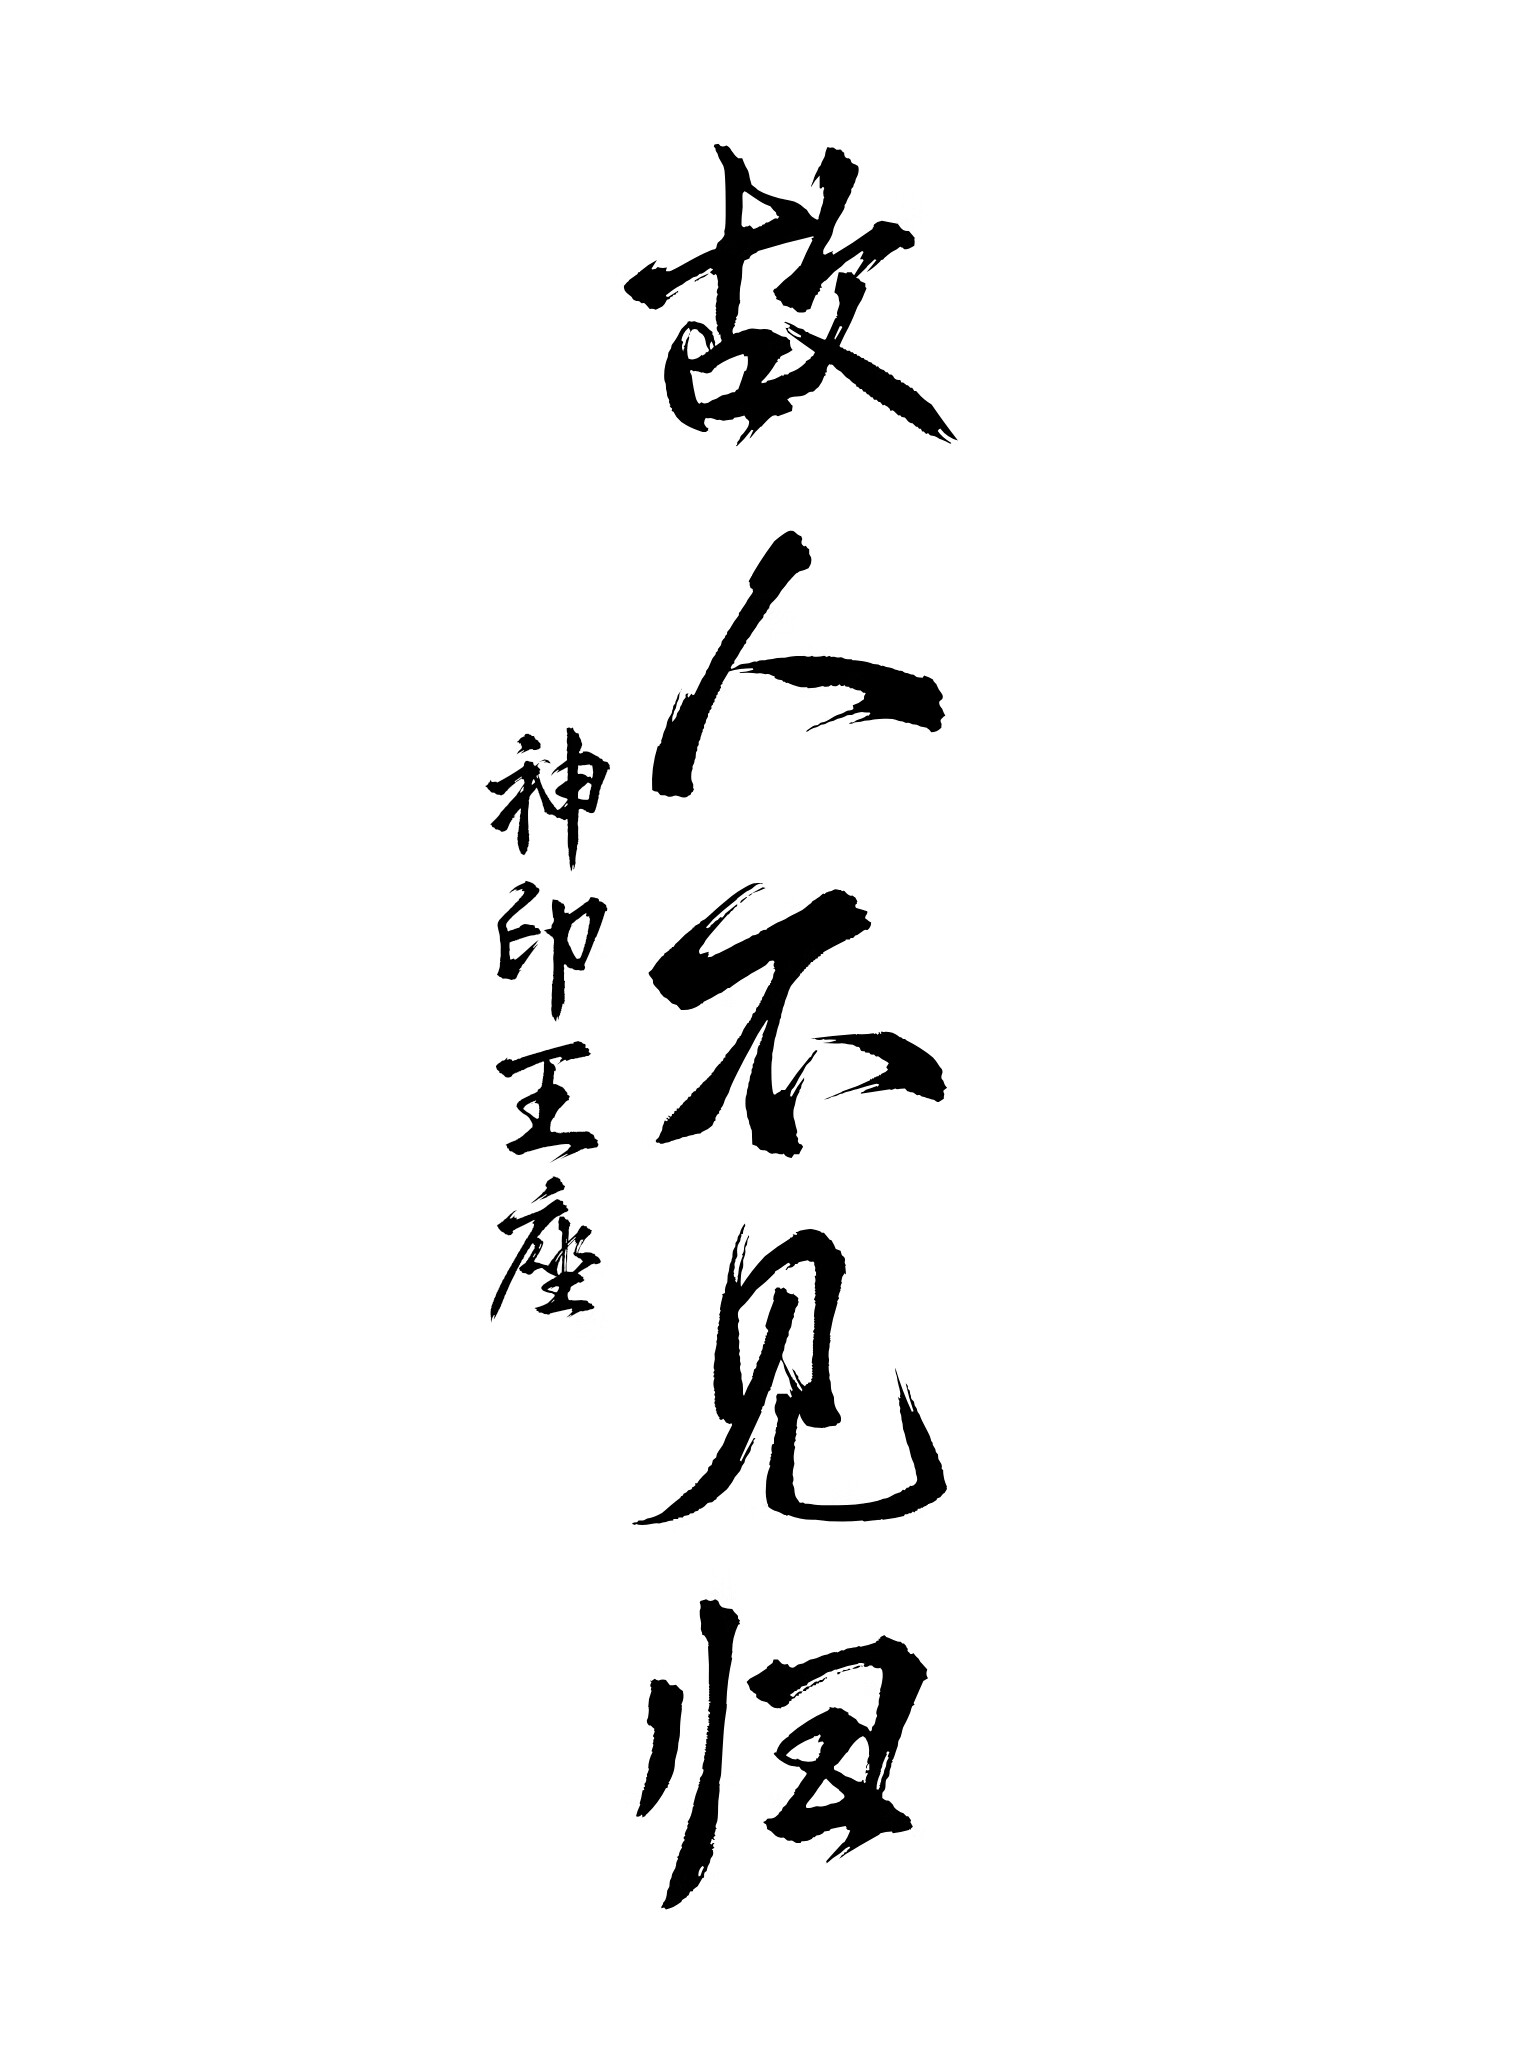 故人不见归
神印王座